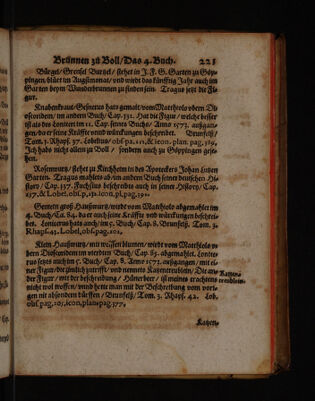 Brunnen zů Boll / Das 4. Buch. 221
Bürgel / Grensel Burtzel / stehet in J. F. G. Garten zu Göp-
pingen, blüet im Augstmonat / und wirdt das künfftig Jahr auch im
Garten beym Wunderbrunnen zu finden sein. Tragus setzt die Fi-
gur.
Knabenkraut / Gesnerus hats gemalt / vom Matthiolo vbern Di-
oscoridem / im andern Buch / Cap. 131. Hat die Figur / welcher besser
ist als des Loniceri im 11. Cap. seines Buchs / Anno 1572. außgan-
gen / do er seine Kräffte und würckungen beschreibt. Brunfelß /
Tom. 3. Rhapf. 37. Lobelius / obs. pa. 111, & icon. plan. pag. 319.
Ich habs nicht allein zu Boll / sondern auch zu Göppingen gese-
hen.
Rosenwurtz / stehet zu Kirchheim in des Apoteckers Johan Lutzen
Garten. Tragus mahlets ab / im andern Buch seiner deutschen Hi-
story / Cap. 337. Fuchsius beschreibts auch in seiner History / Cap.
257. & Lobel. obs. p. 212. icon. pl. pag. 391.
Gemein groß Haußwurtz / wirdt vom Matthiolo abgemahlet im
4. Buch / Ca. 84. da er auch seine Kräffte und würckungen beschrei-
bet. Lonicerus hats auch / im 5. Buch / Cap. 8. Brunfelß / Tom. 3.
Rhapf. 41. Lobel, obs. pag. 202.
Klein Haußwurtz / mit weissen blumen / wirdt vom Matthiolo v-
bern Dioscoridem im vierdten Buch / Cap. 85. abgemahlet. Lonice-
rus setzts auch im 5. Buch / Cap. 8. Anno 1572. außgangen / mit ei-
ner Figur / welche zimlich zutrifft / und nennets Katzentreublein / Die an-
der Figur / mit der beschreibung / Hünerbeer / ist meines erachtens
nicht wol troffen / und hette man mit der Beschreibung vom vori-
gen nit absondern dürffen / Brunfelß / Tom. 3. Rhapf. 42. Lob.
obs. pag. 203, icon. plan. pag. 377.
Katzen-
treublein.
Katzen-